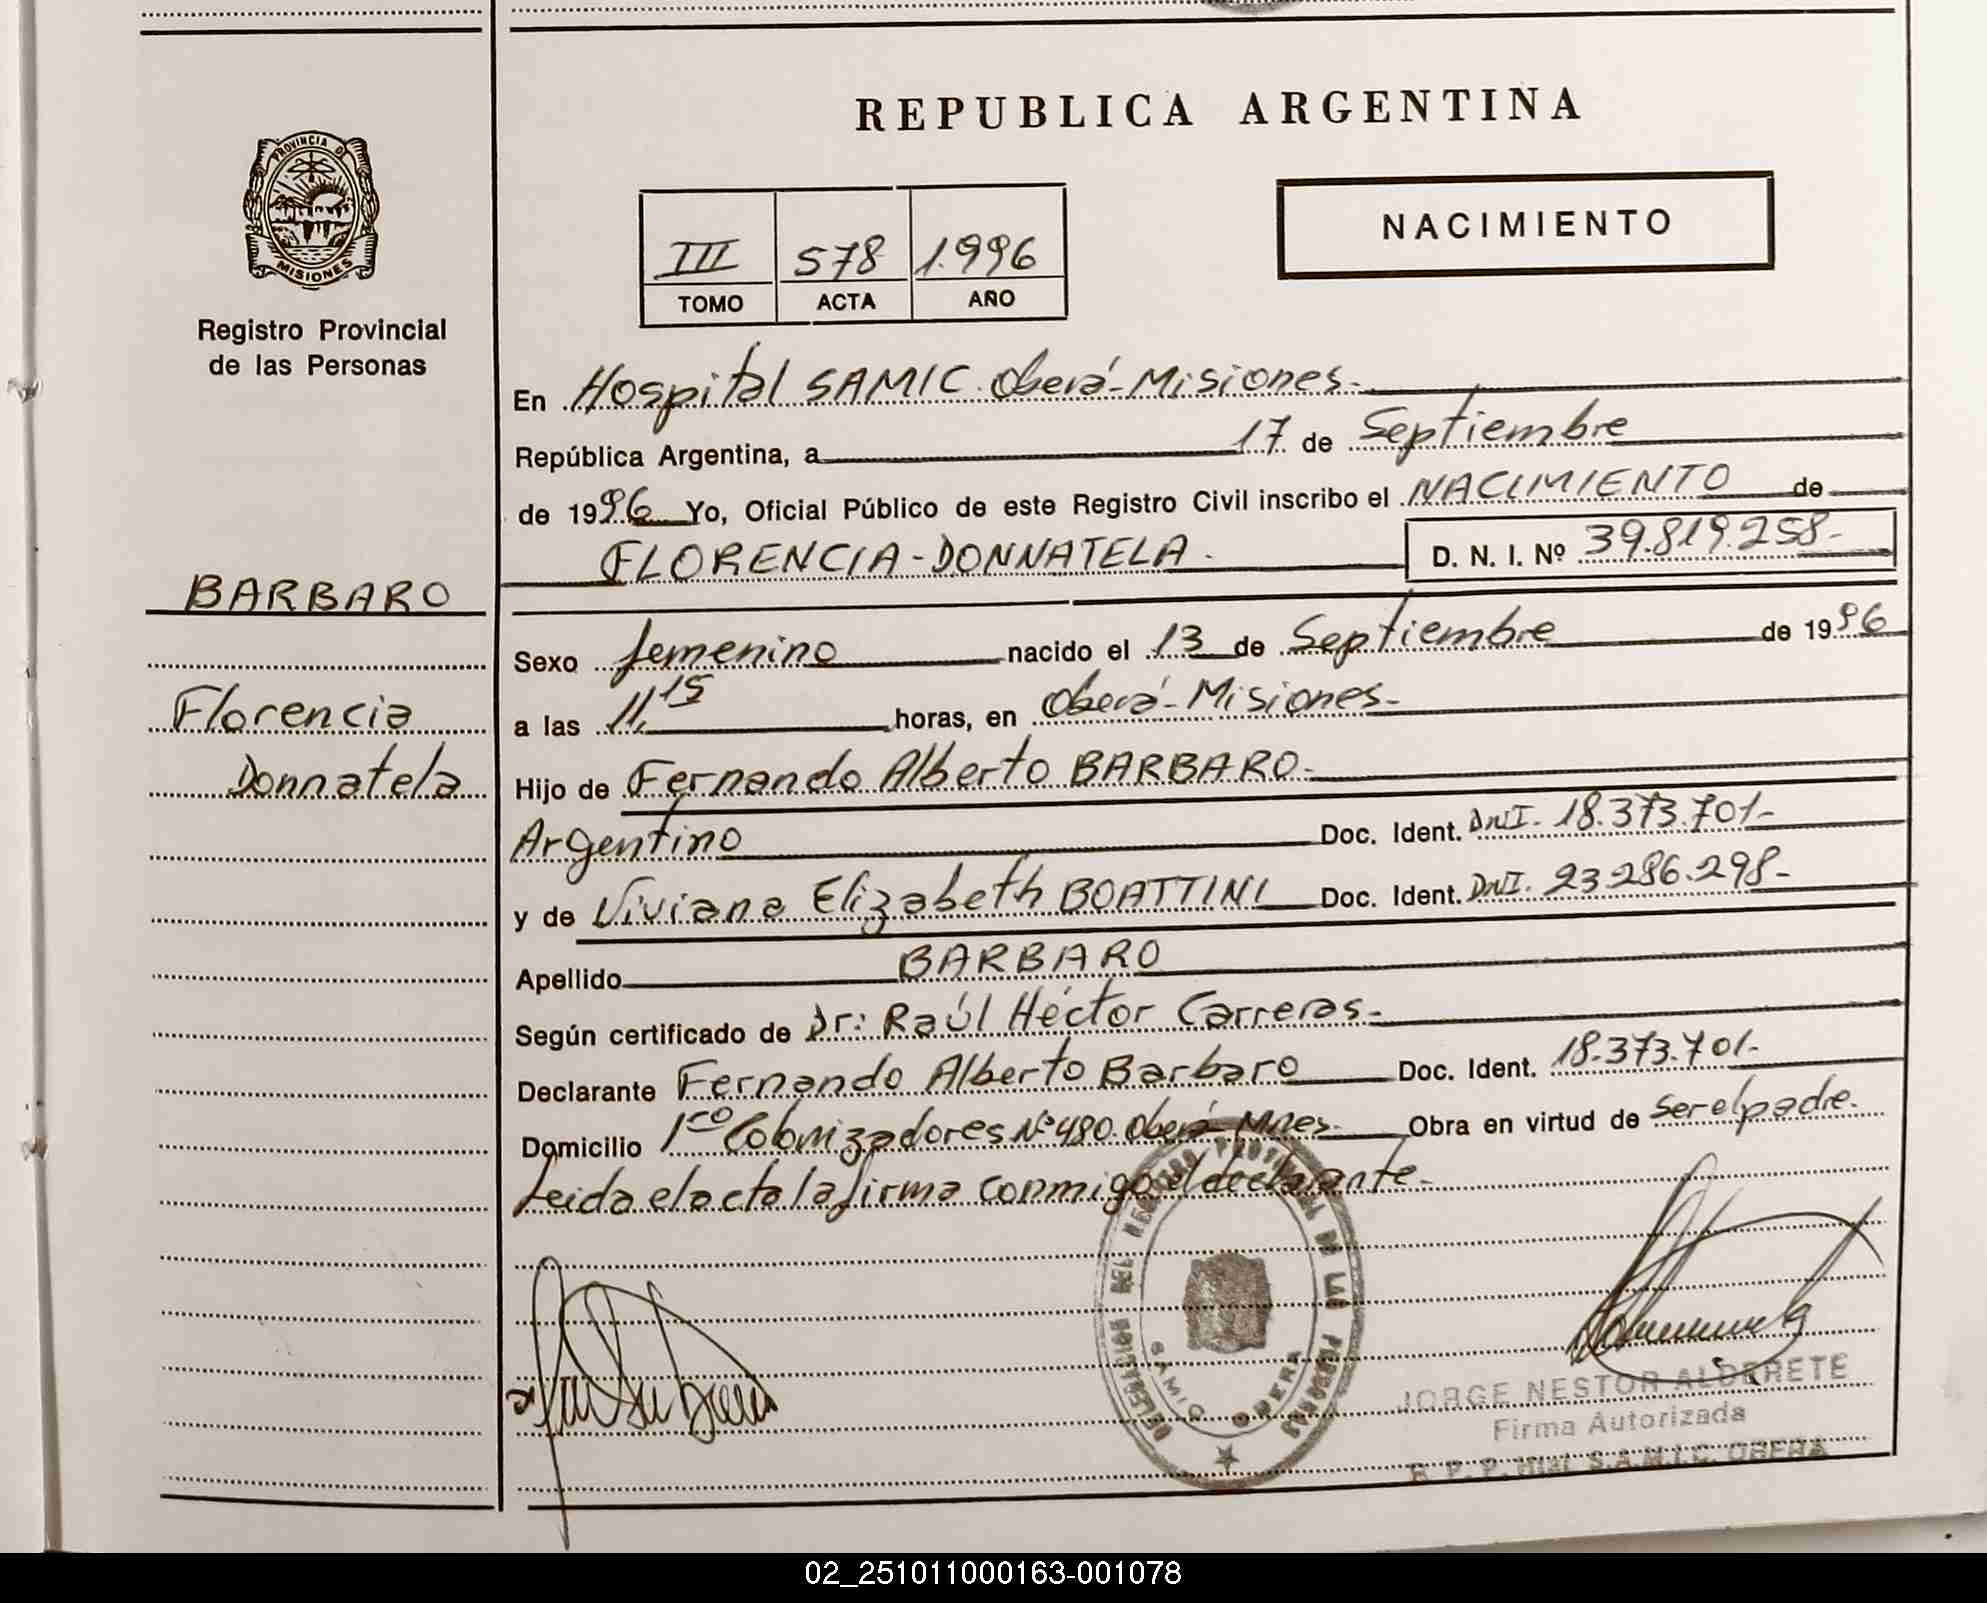 REPUBLICA ARGENTINA
PROVINCIA DE
MISIONES
Registro Provincial
de las Personas
III 578 1.996
TOMO ACTA AÑO
NACIMIENTO
En Hospital SAMIC. Oberá-Misiones.-
República Argentina, a 17 de Septiembre
de 1996 Yo, Oficial Público de este Registro Civil inscribo el NACIMIENTO de
FLORENCIA-DONNATELA.
D. N. I. Nº 39.819.258-
BARBARO
Florencia
Donnatela
Sexo femenino nacido el 13 de Septiembre de 1996
a las 11,15 horas, en Oberá-Misiones-
Hijo de Fernando Alberto BARBARO-
Argentino Doc. Ident. DNI. 18.373.701-
y de Viviana Elizabeth BOATTINI Doc. Ident. DNI. 23.286.298-
Apellido BARBARO
Según certificado de Dr: Raúl Héctor Carreras-
Declarante Fernando Alberto Barbaro Doc. Ident. 18.373.701-
Domicilio 1ro Colonizadores Nº 480. Oberá Mnes- Obra en virtud de ser el padre.
Leida el acta la firma conmigo el declarante-
DELEGACION DEL REGISTRO PROVINCIAL DE LAS PERSONAS
SAMIC OBERA
JORGE NESTOR ALDERETE
Firma Autorizada
R. P. P. Htal. S.A.M.I.C. OBERA
02_251011000163-001078